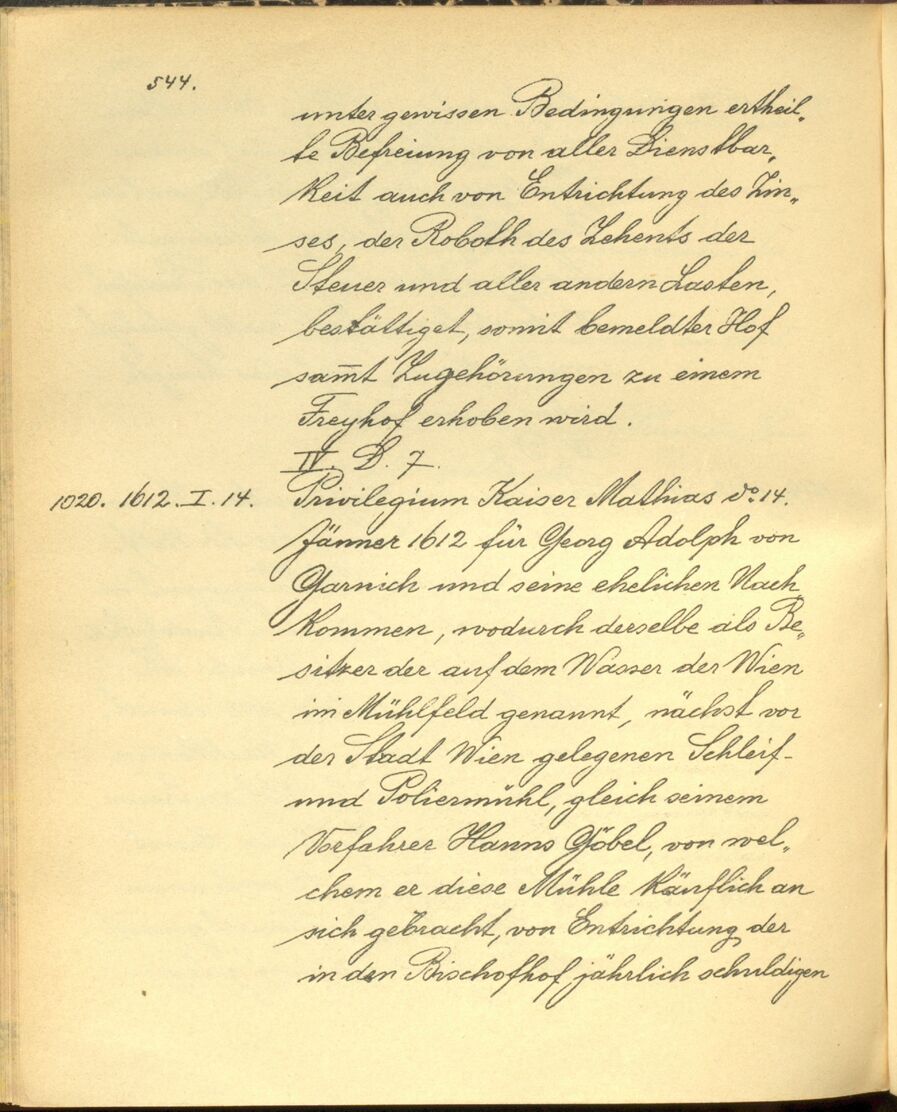 544.
unter gewissen Bedingungen ertheil„
te Befreiung von aller Dienstbar„
keit auch von Entrichtung des Zin„
ses, der Roboth des Zehents der
Steuer und aller andern Lasten,
bestättiget, somit bemeldter Hof
sam̄t Zugehörungen zu einem
Freyhof erhoben wird.
IV. D. 7.
1020. 1612. I. 14. Privilegium Kaiser Mathias do. 14.
Jänner 1612 für Georg Adolph von
Garnich und seine ehelichen Nach„
kommen, wodurch derselbe als Be„
sitzer der auf dem Wasser der Wien
im Mühlfeld genannt, nächst vor
der Stadt Wien gelegenen Schleif-
und Poliermühl, gleich seinem
Vorfahrer Hanns Göbel, von wel„
chem er diese Mühle käuflich an
sich gebracht, von Entrichtung der
in den Bischofhof jährlich schuldigen